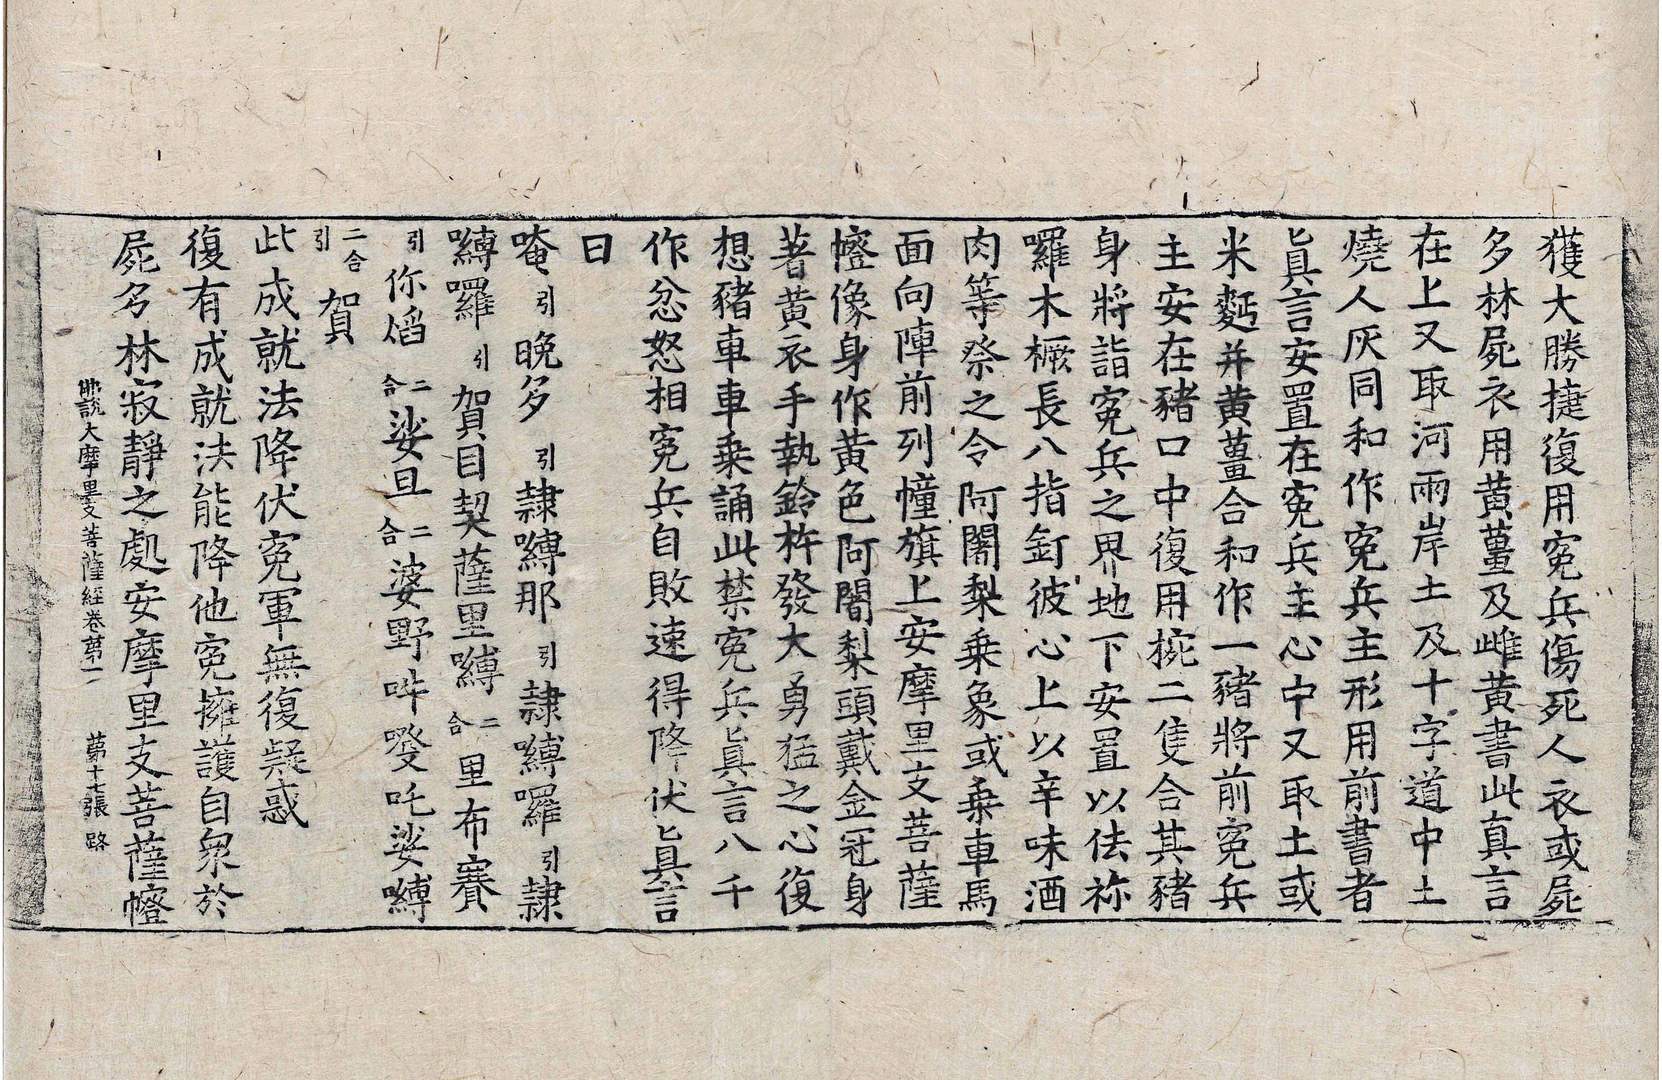 獲大勝捷復用寃兵傷死人衣或屍
多林屍衣用黃薑及雌黃書此真言
在上又取河兩岸土及十字道中土
燒人灰同和作寃兵主形用前書者
真言安置在寃兵主心中又取土或
米麪并黃薑合和作一豬將前寃兵
主安在豬口中復用椀二隻合其豬
身將詣寃兵之界地下安置以佉祢
囉木橛長八指釘彼心上以辛味酒
肉等祭之令阿闍梨乗象或乗車馬
面向陣前列幢旗上安摩里支菩薩
㡧像身作黃色阿闍梨頭戴金冠身
著黃衣手執鈴杵發大勇猛之心復
想豬車車乗誦此禁寃兵真言八千
作忿怒相寃兵自敗速得降伏真言
曰
唵引晚多引隷嚩那引隷嚩囉引隷
嚩囉引賀目契薩里嚩二合里布賽
引你焰二合娑旦二合婆野吽癹吒娑嚩
二合引賀引
此成就法降伏寃軍無復疑惑
復有成就法能降他寃擁護自衆於
屍多林寂靜之處安摩里支菩薩㡧
佛說大摩里支菩薩經卷第一 第十七張 路